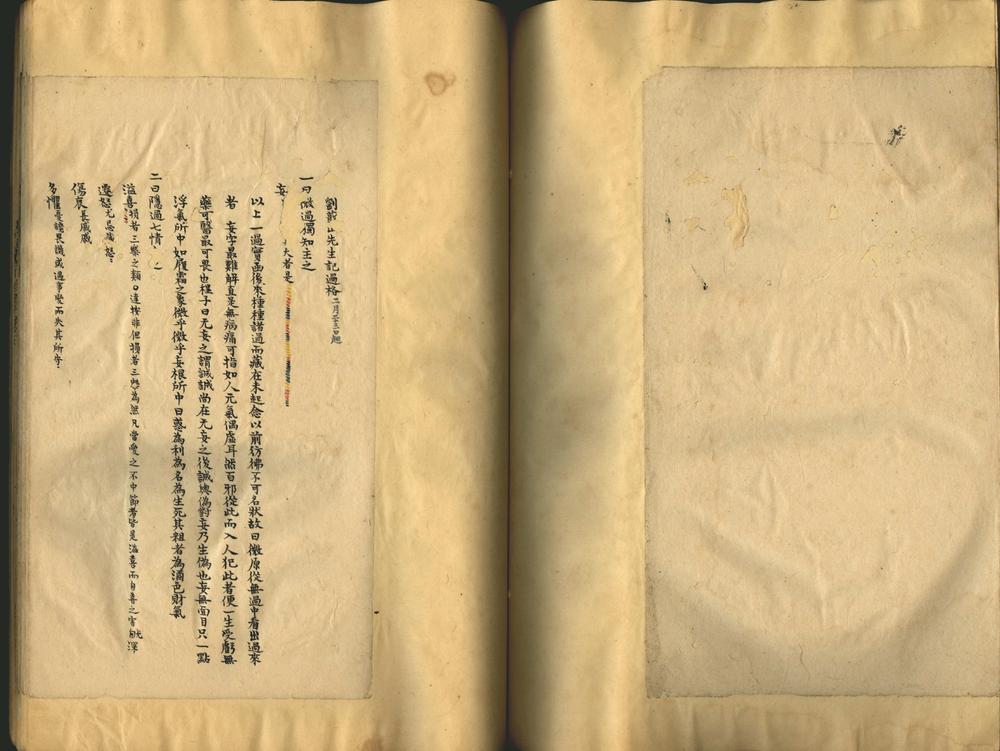 劉蕺山先生記過格 二月廿三日起
一曰微過獨知主之
妄 大者是
以上一過實函後來種種諸過而藏在未起念以前彷彿不可名狀故曰微原從無過中看出過來
者 妄字最難解直是無病痛可指如人元氣偶虛耳然百邪從此而入人犯此者便一生受虧無
藥可醫最可畏也程子曰无妄之謂誠誠尚在无妄之後誠與偽對妄乃生偽也妄無面目只一點
浮氣所中如履霜之象微乎微乎妄根所中曰惑為利為名為生死其粗者為酒色財氣
二曰隱過七情
溢喜 損者三樂之類 凡當愛之不中節者皆是溢喜而自喜之害
遷怒 尤忌 怒
傷哀 長戚戚
多懼 憂讒畏譏或遇事變而失其所守